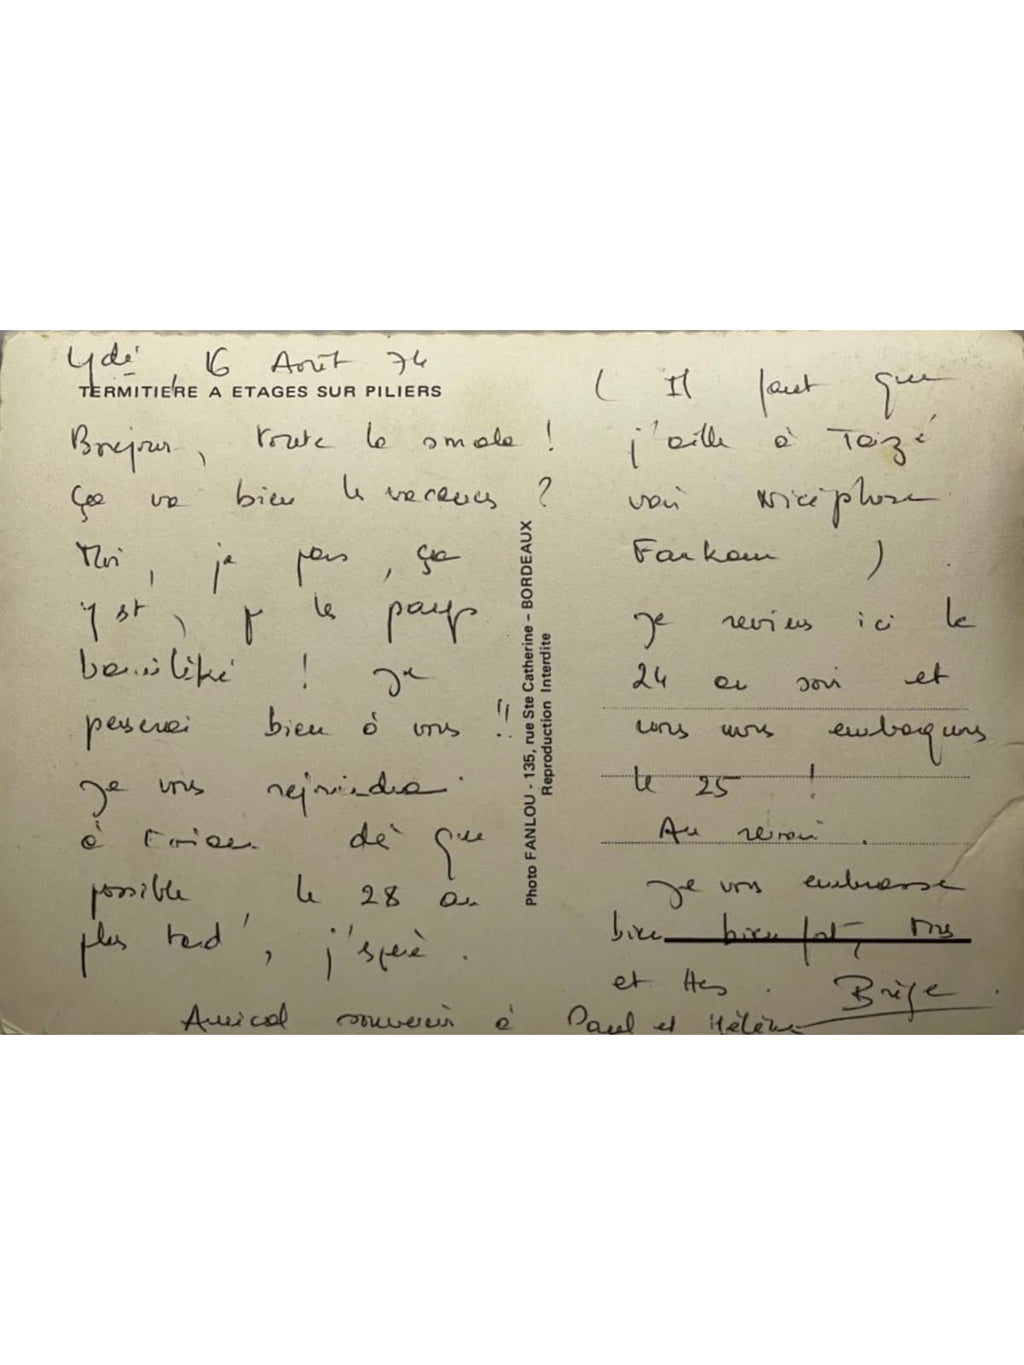 Ydé, 16 Août 74
TERMITIERE A ETAGES SUR PILIERS
Bonjour, toute la smala !
Ça va bien les vacances ?
Moi, je pars, ça
y est, p les pays
bamiléké ! Je
penserai bien à vous !!
Je vous rejoindrai
à dès que
possible, le 28 au
plus tard, j'espère.
Photo FANLOU - 135, rue Ste Catherine - BORDEAUX
Reproduction Interdite
( Il faut que
j'aille à Taizé
voir Nicéphore
)
Je reviens ici le
24 au soir et
nous embarquons
le 25 !
Au revoir.
Je vous embrasse
bien bien fort, tous
et ttes. Brige
Amical souvenir à Paul et Hélène